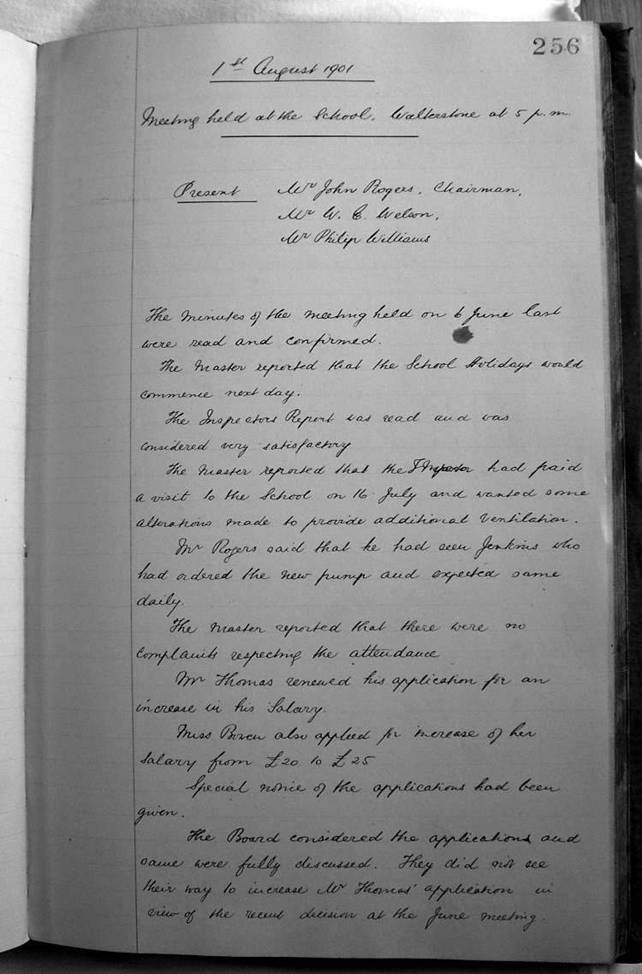 256
1st August 1901
Meeting held at the School, Walterstone at 5 p.m.
Present Mr John Rogers, Chairman,
Mr W. C. Welson,
Mr Philip Williams
The Minutes of the Meeting held on 6 June last
were read and confirmed.
The Master reported that the School Holidays would
commence next day.
The Inspectors Report was read and was
considered very satisfactory
The Master reported that the Inspector had paid
a visit to the School on 16 July and wanted some
alterations made to provide additional ventilation.
Mr Rogers said that he had seen Jenkins who
had ordered the new pump and expected same
daily.
The Master reported that there were no
complaints respecting the attendance
Mr Thomas renewed his application for an
increase in his Salary.
Miss Bowen also applied for increase of her
Salary from £20 to £25
Special notice of the applications had been
given.
The Board considered the applications and
same were fully discussed. They did not see
their way to increase Mr Thomas' application in
view of the recent decision at the June meeting.